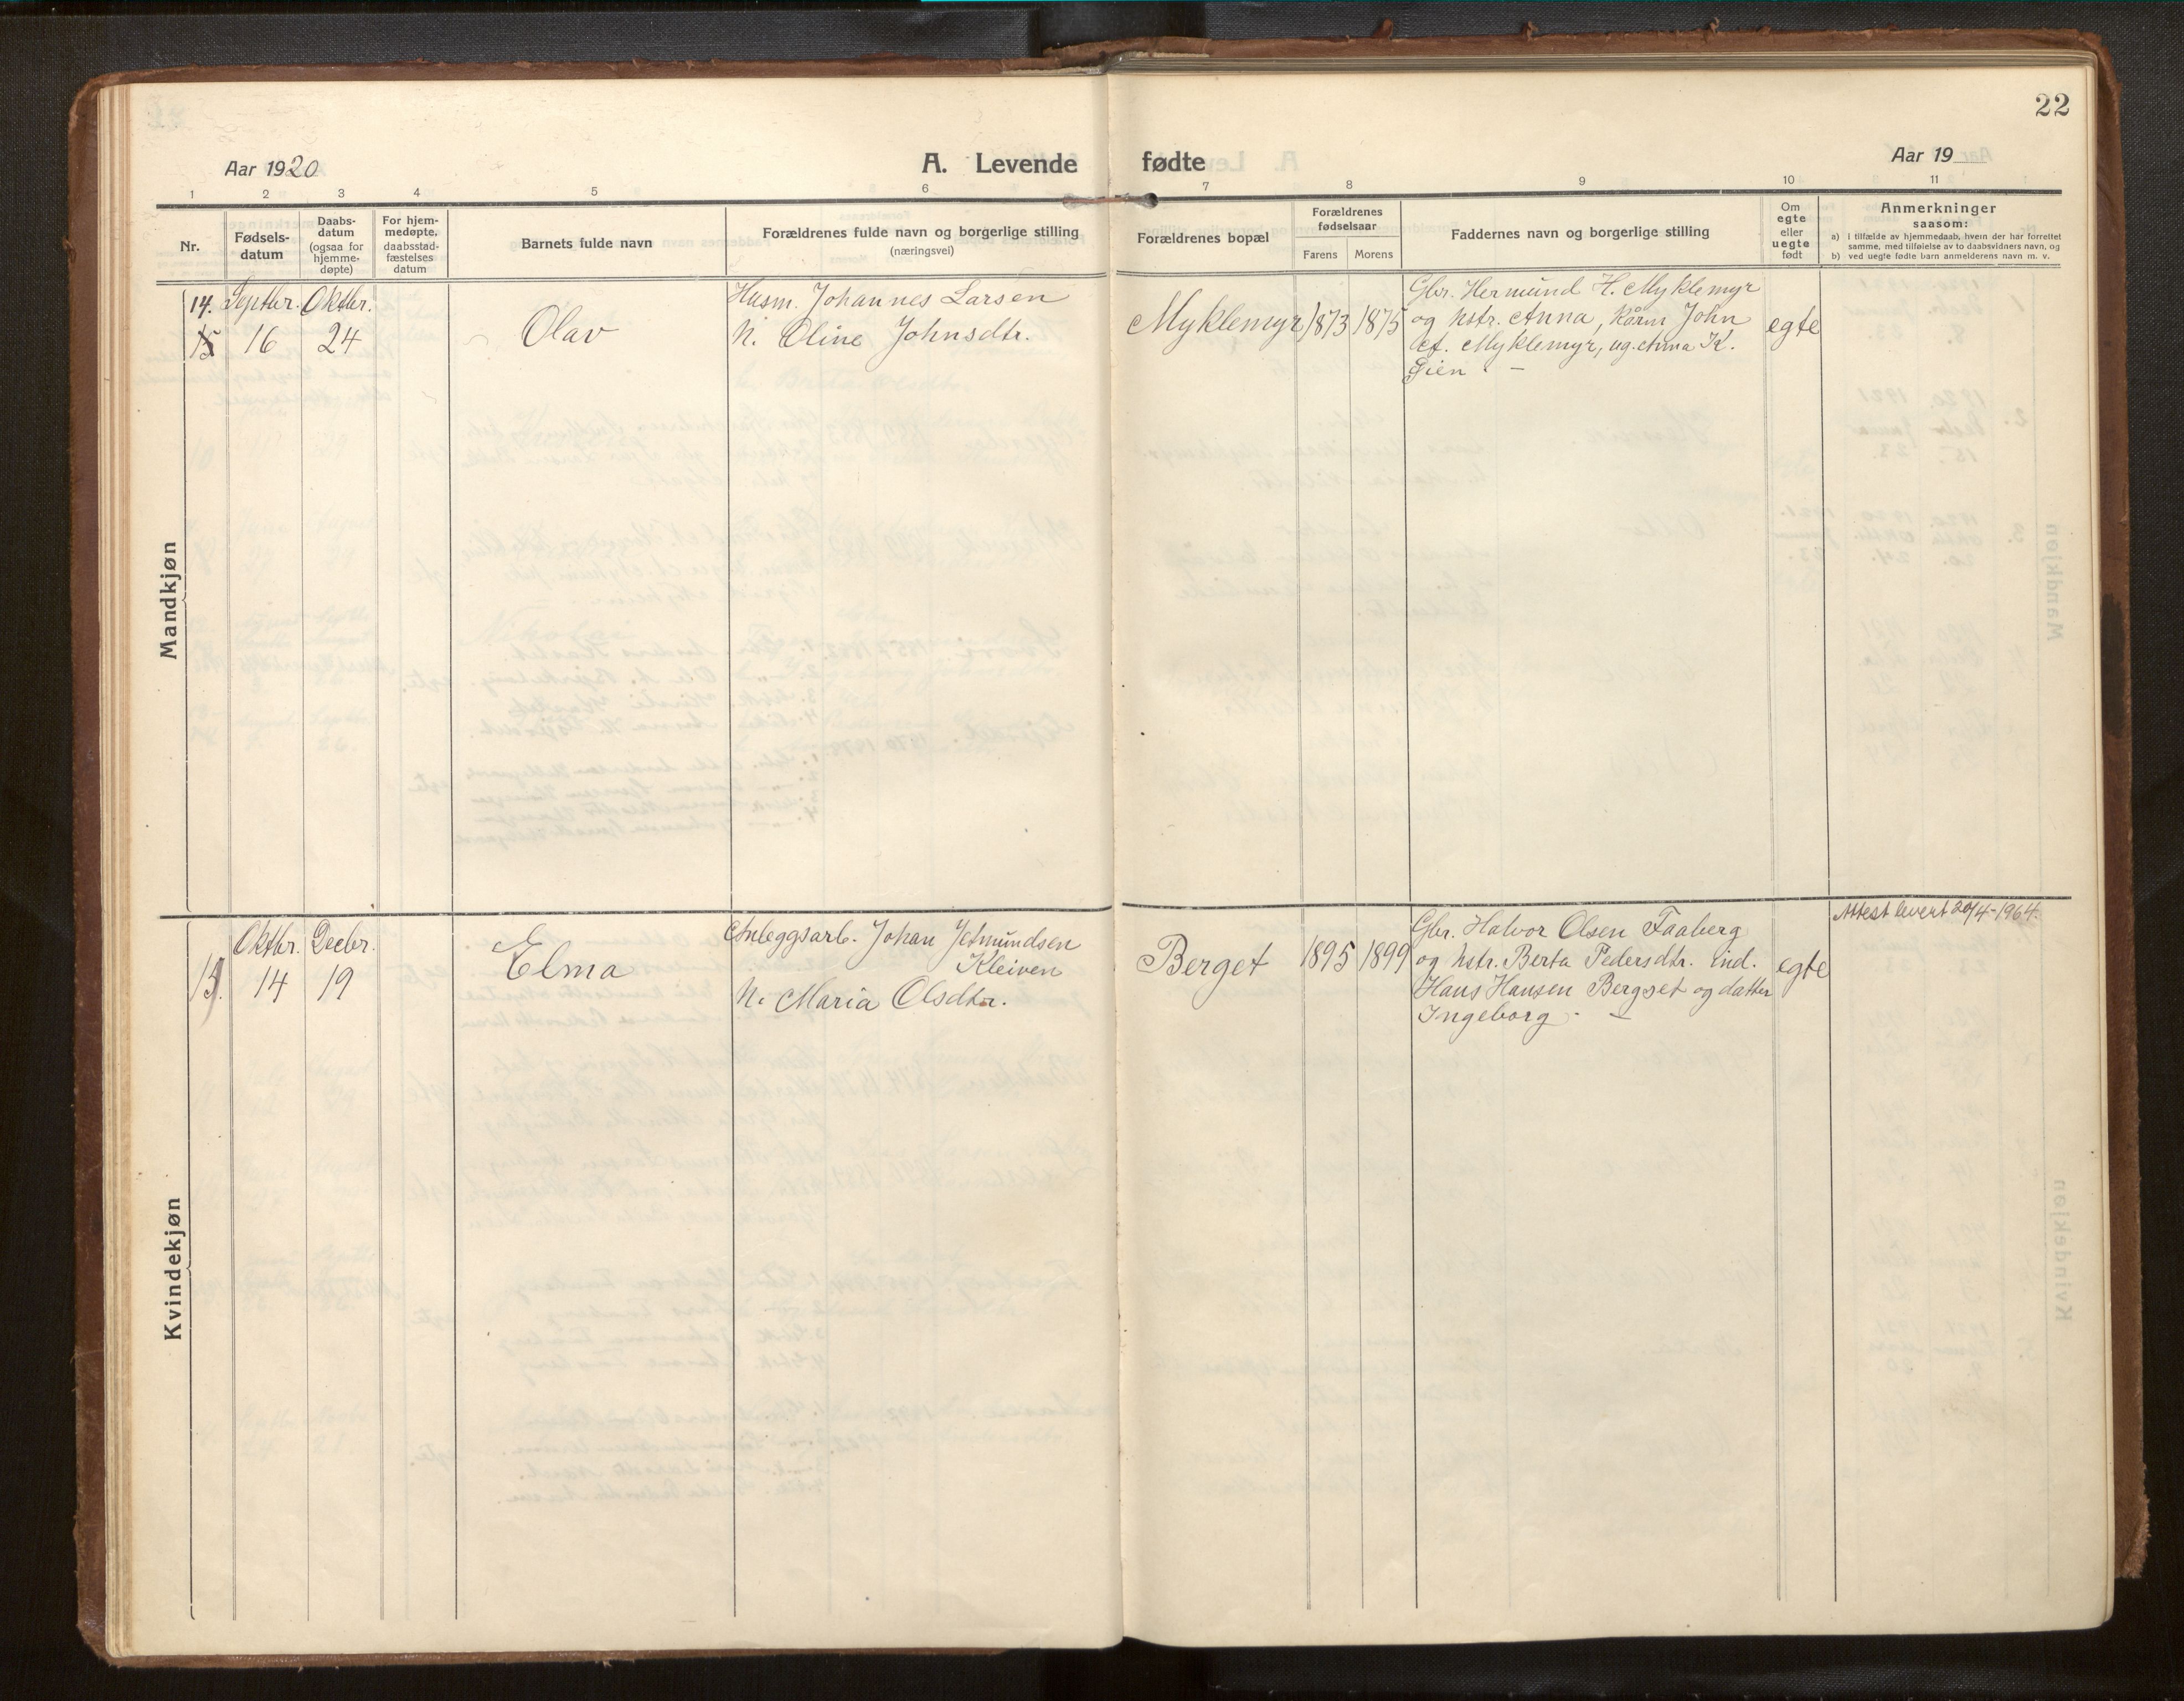 22
Aar 1920
A. Levende fødte
Aar 19
1 2 3 4 5 6 7 8 9 10 11
Nr.
Fødsels-
datum
Daabs-
datum
(ogsaa for
hjemme-
døpte)
For hjem-
medøpte,
daabsstad-
fæstelses
datum
Barnets fulde navn
Forældrenes fulde navn og borgerlige stilling
(næringsvei)
Forældrenes bopæl
Forældrenes
fødselsaar
Farens Morens
Faddernes navn og borgerlige stilling
Om
egte
eller
uegte
født
Anmerkninger
saasom:
a) i tilfælde av hjemmedaab, hvem der har forrettet
samme, med tilføielse av to daabsvidners navn, og
b) ved uegte fødte barn anmelderens navn m. v.
Mandkjøn
14.
15
Septbr.
16
Oktbr.
24
Olav
Husm. Johannes Larsen
H. Oline Johnsdtr.
Myklemyr
1873
1875
Gbr. Hermund H. Myklemyr
og hstr. Anna, John
Myklemyr, ug. Anna K.
egte
Kvindekjøn
Oktbr.
14
Decbr.
19
Elma
Anleggsarb. Johan Jetmundsen
Kleiven
H. Maria Olsdtr.
Berget
1895
1899
Gbr. Halvor Olsen Faaberg
og hstr. Berta Pedersdtr. ind.
Hans Hansen Bergset og datter
Ingeborg. —
egte
Attest levert 20/4-1964.